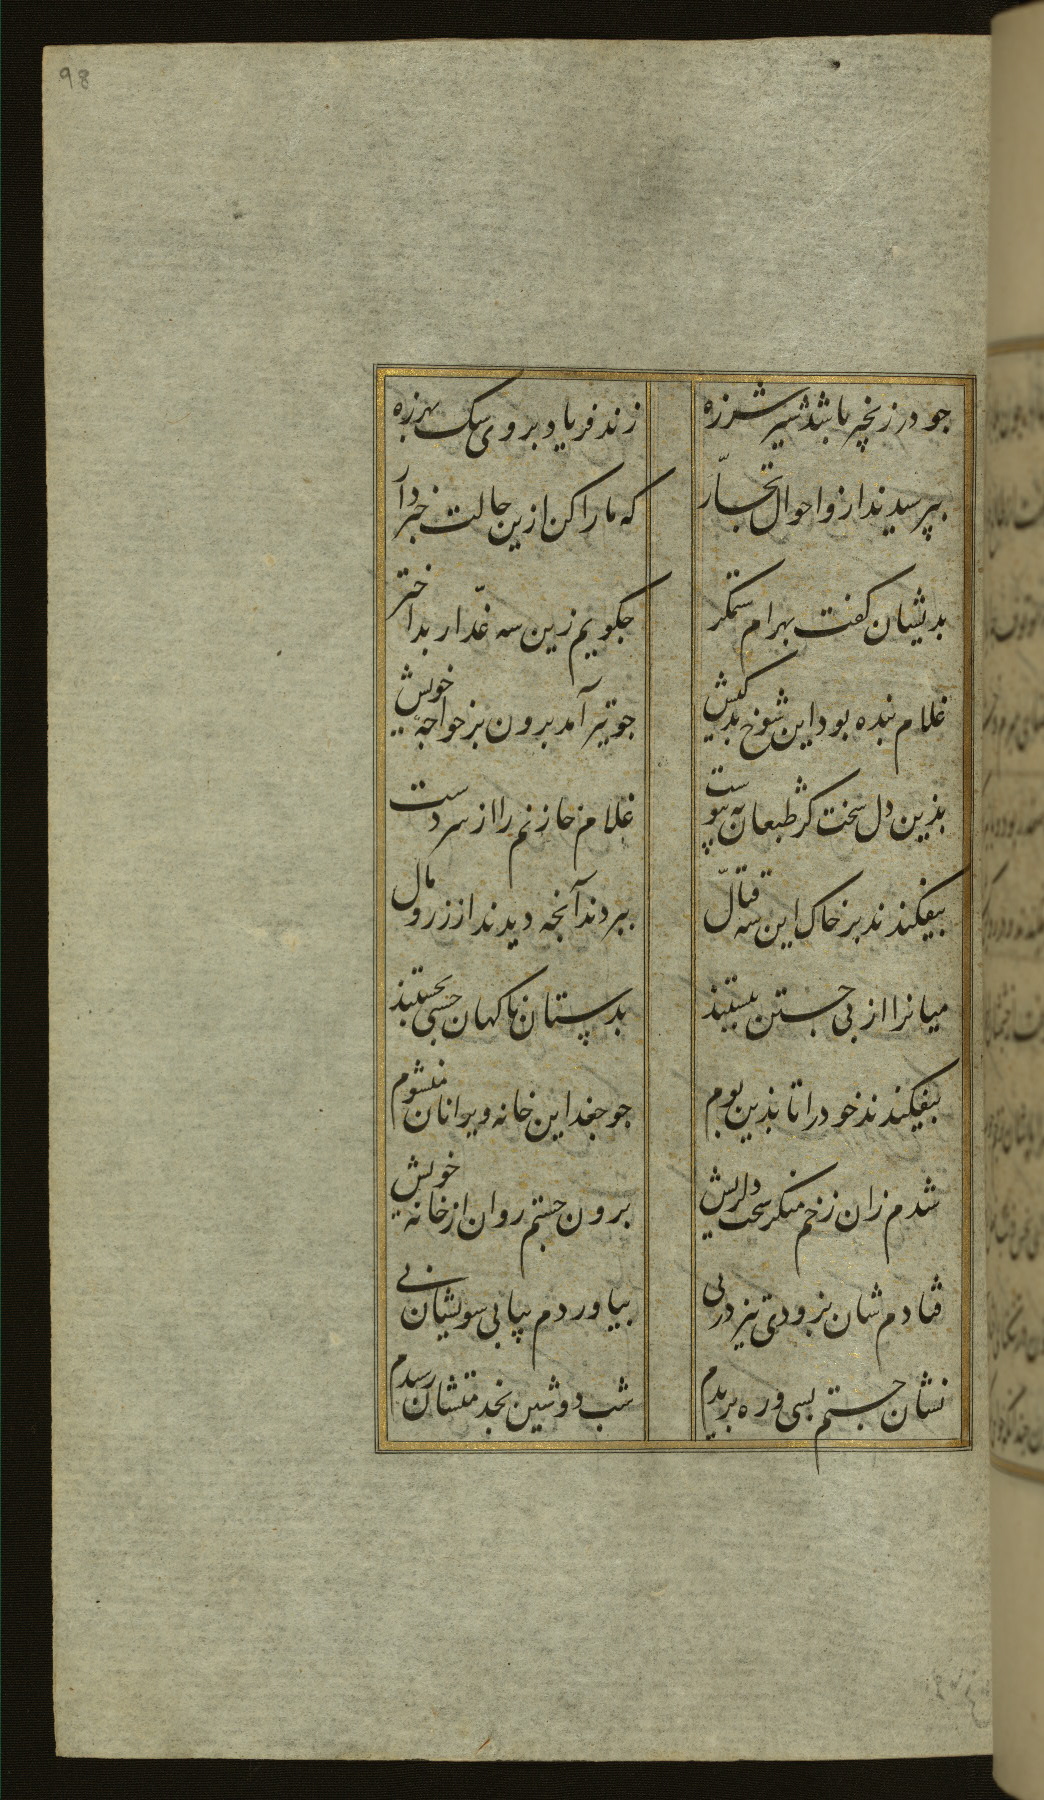 98
جو در زنجیر باشد شیر شرزه زند فریاد بر وی سک بهرزه
بپرسیدند ازو احوال تجّار که ما را کن ازین حالت خبردآ
بدیشان کفت بهرام ستمکر جکویم زین سه غدّار بداختر
غلام بنده بود این شوخ بدکیش جو تیر آمد برون بز خواجهٔ خویش
بذین دل سخت کژطبعان بپیوست غلام خازنم را از سر دست
بیفکندند بز خاک این سه قتّال ببردند آنجه دیدند از زر و مال
میانرا از پی جستن ببستند بدستان ناکهان جستی بجستند
بیفکندند خود را تا بذین بوم جو جغد این خانه ویرانان میشوم
شدم زان زخم منکر سخت دلریش برون جستم روان از خانهٔ خویش
فتادم شان بزودی تیز در پی بیاوردم پیاپی سویشان پی
نشان جستم بسی و ره بریدم شب دوشین بخدمتشان رسیدم